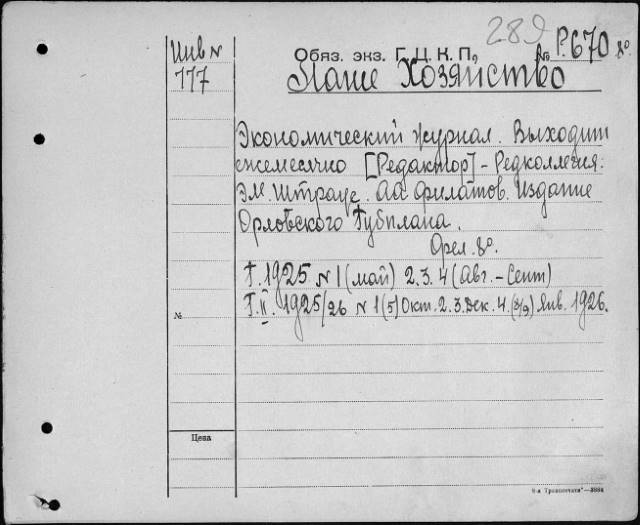 289
Инв N Обяз. экз. Г. Ц. К. П., № Р.670 8°
777 Наше Хозяйство
Экономический журнал. Выходит
ежемесячно [Редактор] - Редколлегия:
Эм. Штраус. Ад. Филатов. Издание
Орловского Губплана.
Орел. 8°.
Г. 1925 N 1 (май) 2. 3. 4 (Авг. - Сент)
Г. II. 1925/26 N 1 (5) Окт. 2. 3. Дек. 4. (8/9) Янв. 1926.
№
Цена